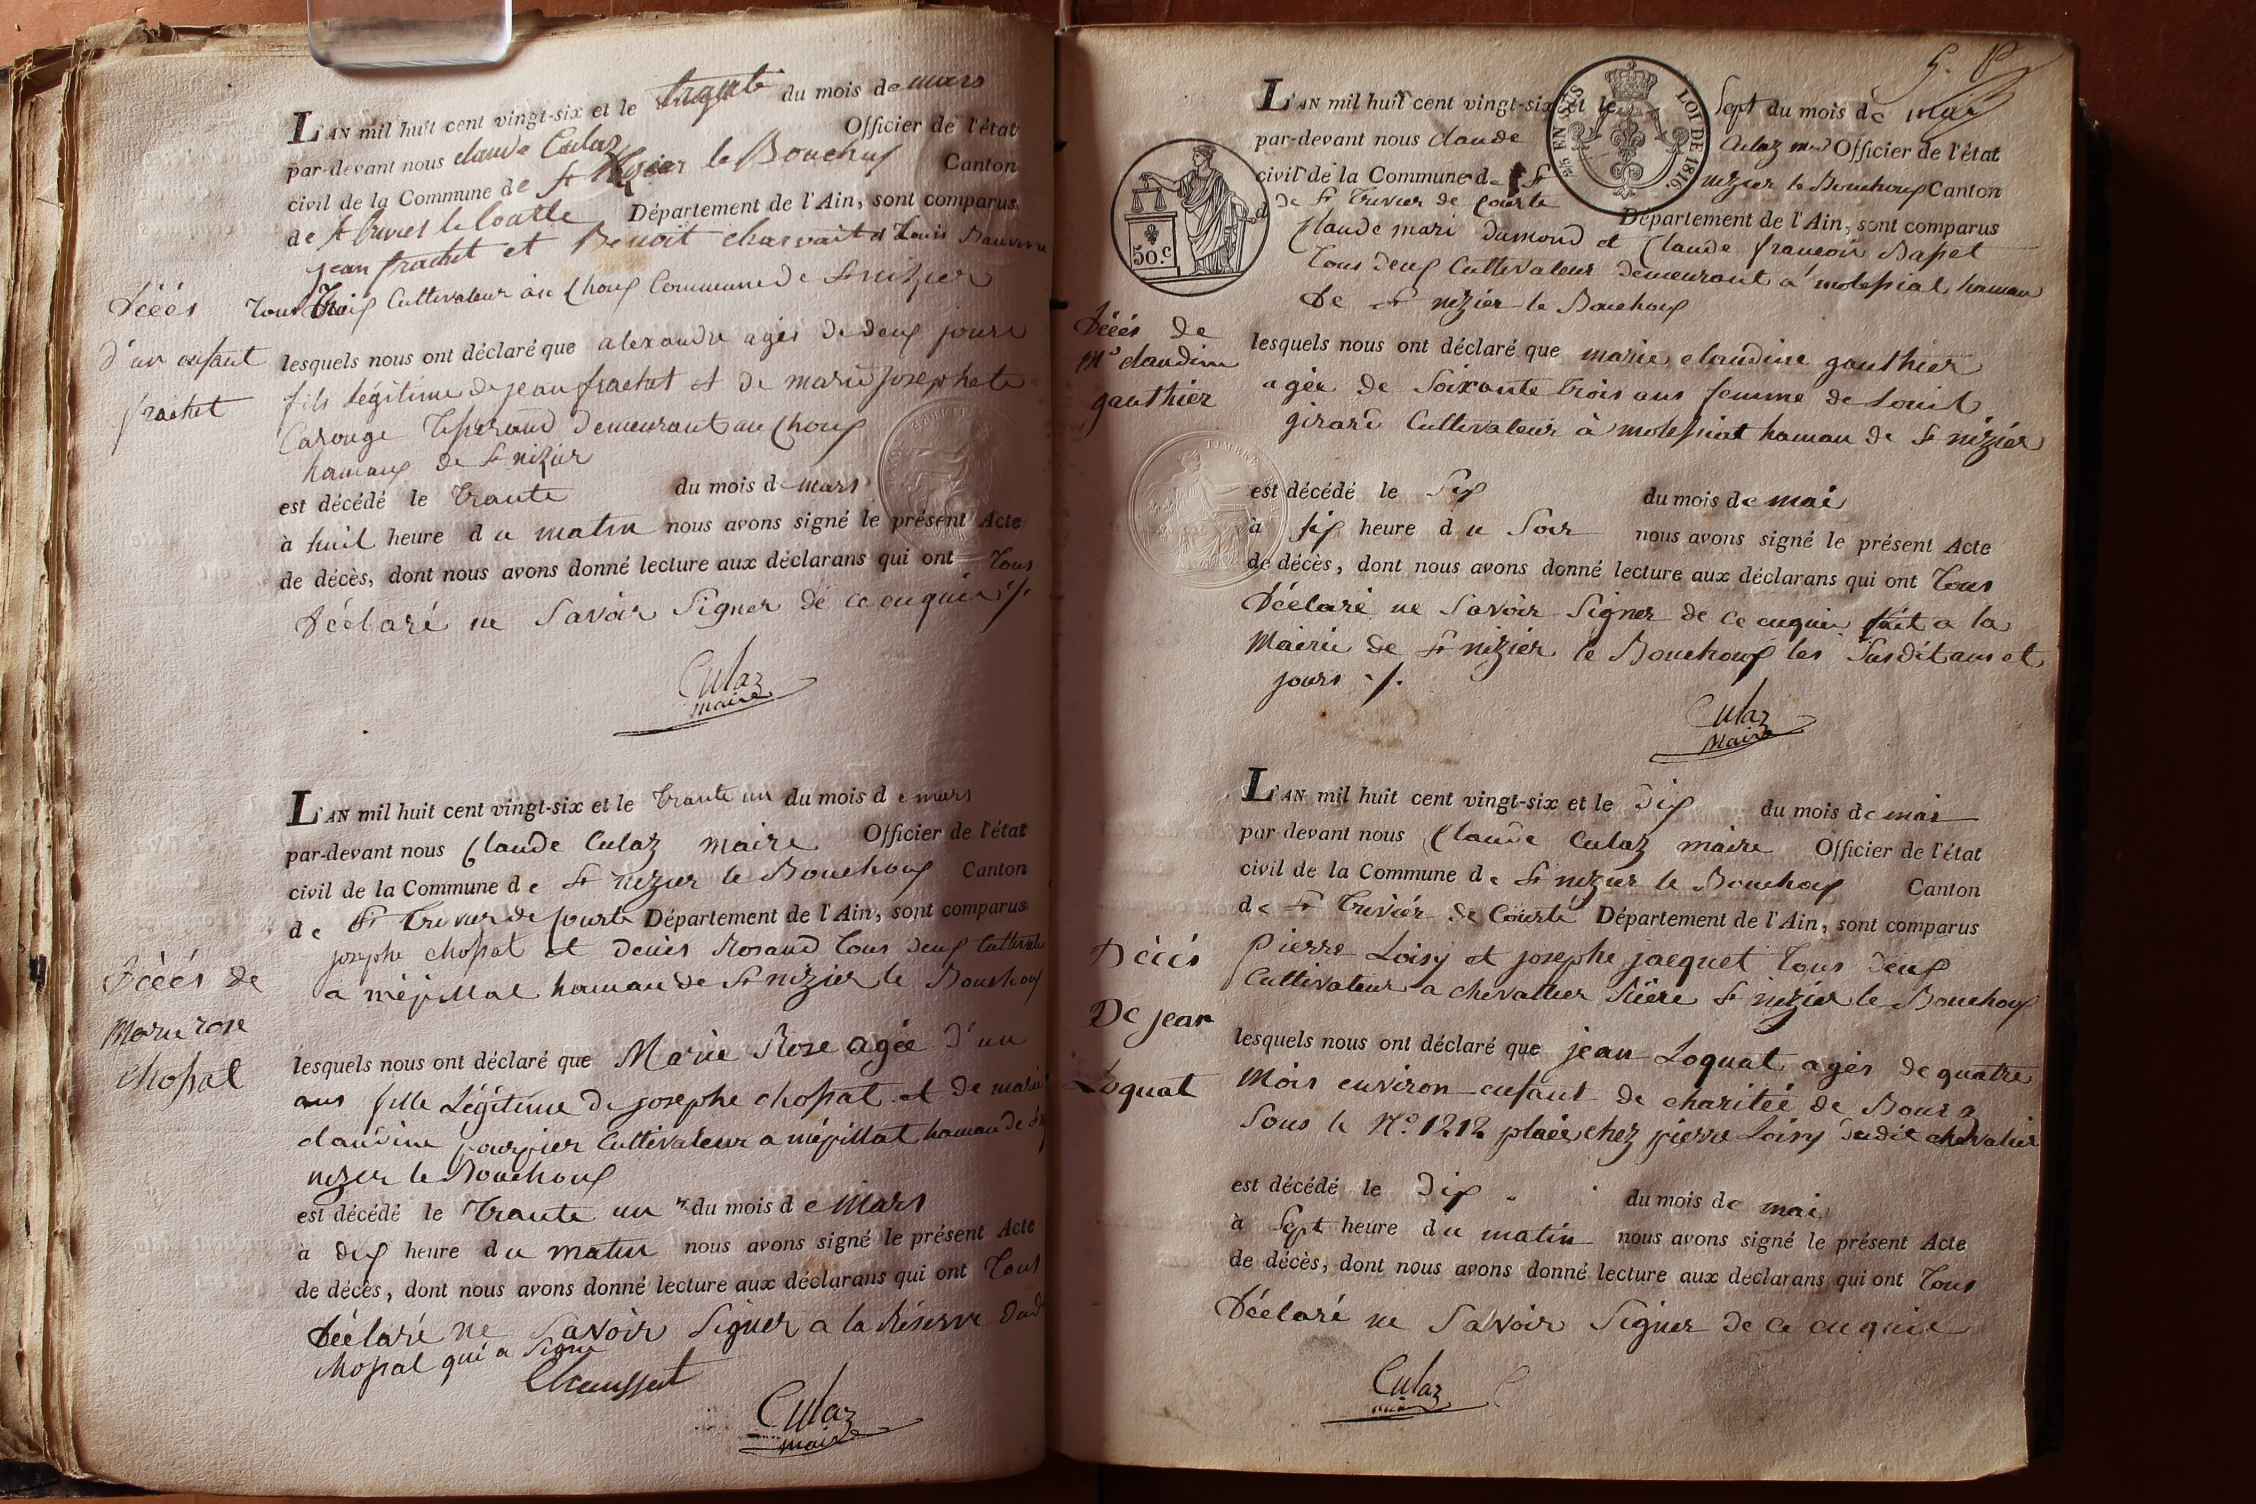 L'AN mil huit cent vingt-six et le trente du mois de mars
par-devant nous claude Culaz Officier de l'état
civil de la Commune de St Nizier le Bouchoux Canton
de St Département de l'Ain, sont comparus
jean frachet et Benoit et Louis
tous trois Cultivateur au Choux Commune de St nizier
Décés
d'un enfant
frachet
lesquels nous ont déclaré que alexandre agés de deux jours
fils Légitime de jean frachet et de marie josephete
demeurant au Choux
hamaux de St nizier
est décédé le trante du mois de mars
à huit heure du matin nous avons signé le présent Acte
de décès, dont nous avons donné lecture aux déclarans qui ont tous
Déclaré ne Savoir Signer de ce enquis ./.
Culaz
maire
L'AN mil huit cent vingt-six et le trante un du mois de mars
par-devant nous Claude Culaz maire Officier de l'état
civil de la Commune de St nizier le Bouchoux Canton
de St trivier de Courte Département de l'Ain, sont comparus
josephe chossat et denis Rosand tous deux
a mépillat hamau de St nizier le Bouchoux
Décés de
Marie rose
Chossat
lesquels nous ont déclaré que Marie Rose agée d'un
ans fille Légitime de josephe chossat et de marie
claudine Cultivateur a mépillat hamau de St
nizier le Bouchoux
est décédé le trante un du mois de Mars
à dix heure du matin nous avons signé le présent Acte
de décès, dont nous avons donné lecture aux déclarans qui ont tous
Déclaré ne Savoir Signer a la Réserve dud
chossat qui a Signé
Culaz
maire
L'AN mil huit cent vingt-six et le Sept du mois de mai
par-devant nous claude Culaz Officier de l'état
civil de la Commune de St nizier le Bouchoux Canton
de St Trivier de Courte Département de l'Ain, sont comparus
EN SUS
LOI DE 1816.
50.c
Claude mari dumond et Claude françois
tous deux Cultivateur demeurant a molessiat hamau
de St nizier le Bouchoux
Décés de
Me claudine
gauthier
lesquels nous ont déclaré que marie claudine gauthier
agée de Soixante trois ans femme de Louis
girard Cultivateur à molessiat hamau de St nizier
TIMBRE
est décédé le Six du mois de mai
à six heure du Soir nous avons signé le présent Acte
de décès, dont nous avons donné lecture aux déclarans qui ont tous
Déclaré ne Savoir Signer de ce enquis fait a la
Mairie de St nizier le Bouchoux les Susdit ans et
jours ./.
Culaz
Maire
L'AN mil huit cent vingt-six et le dix du mois de mai
par devant nous Claude Culaz maire Officier de l'état
civil de la Commune de St nizier le Bouchoux Canton
de St Trivier de Courte Département de l'Ain, sont comparus
pierre Loisy et josephe jacquet tous deux
Cultivateur a chevallier St nizier le Bouchoux
Décés
De jean
Loquat
lesquels nous ont déclaré que jean Loquat agés de quatre
Mois environ enfant de charitée de Bourg
Sous le No 1212 placé chez pierre Loisy chevalier
est décédé le dix du mois de mai
à Sept heure du matin nous avons signé le présent Acte
de décès, dont nous avons donné lecture aux déclarans qui ont tous
Déclaré ne Savoir Signer de ce enquis
Culaz
maire